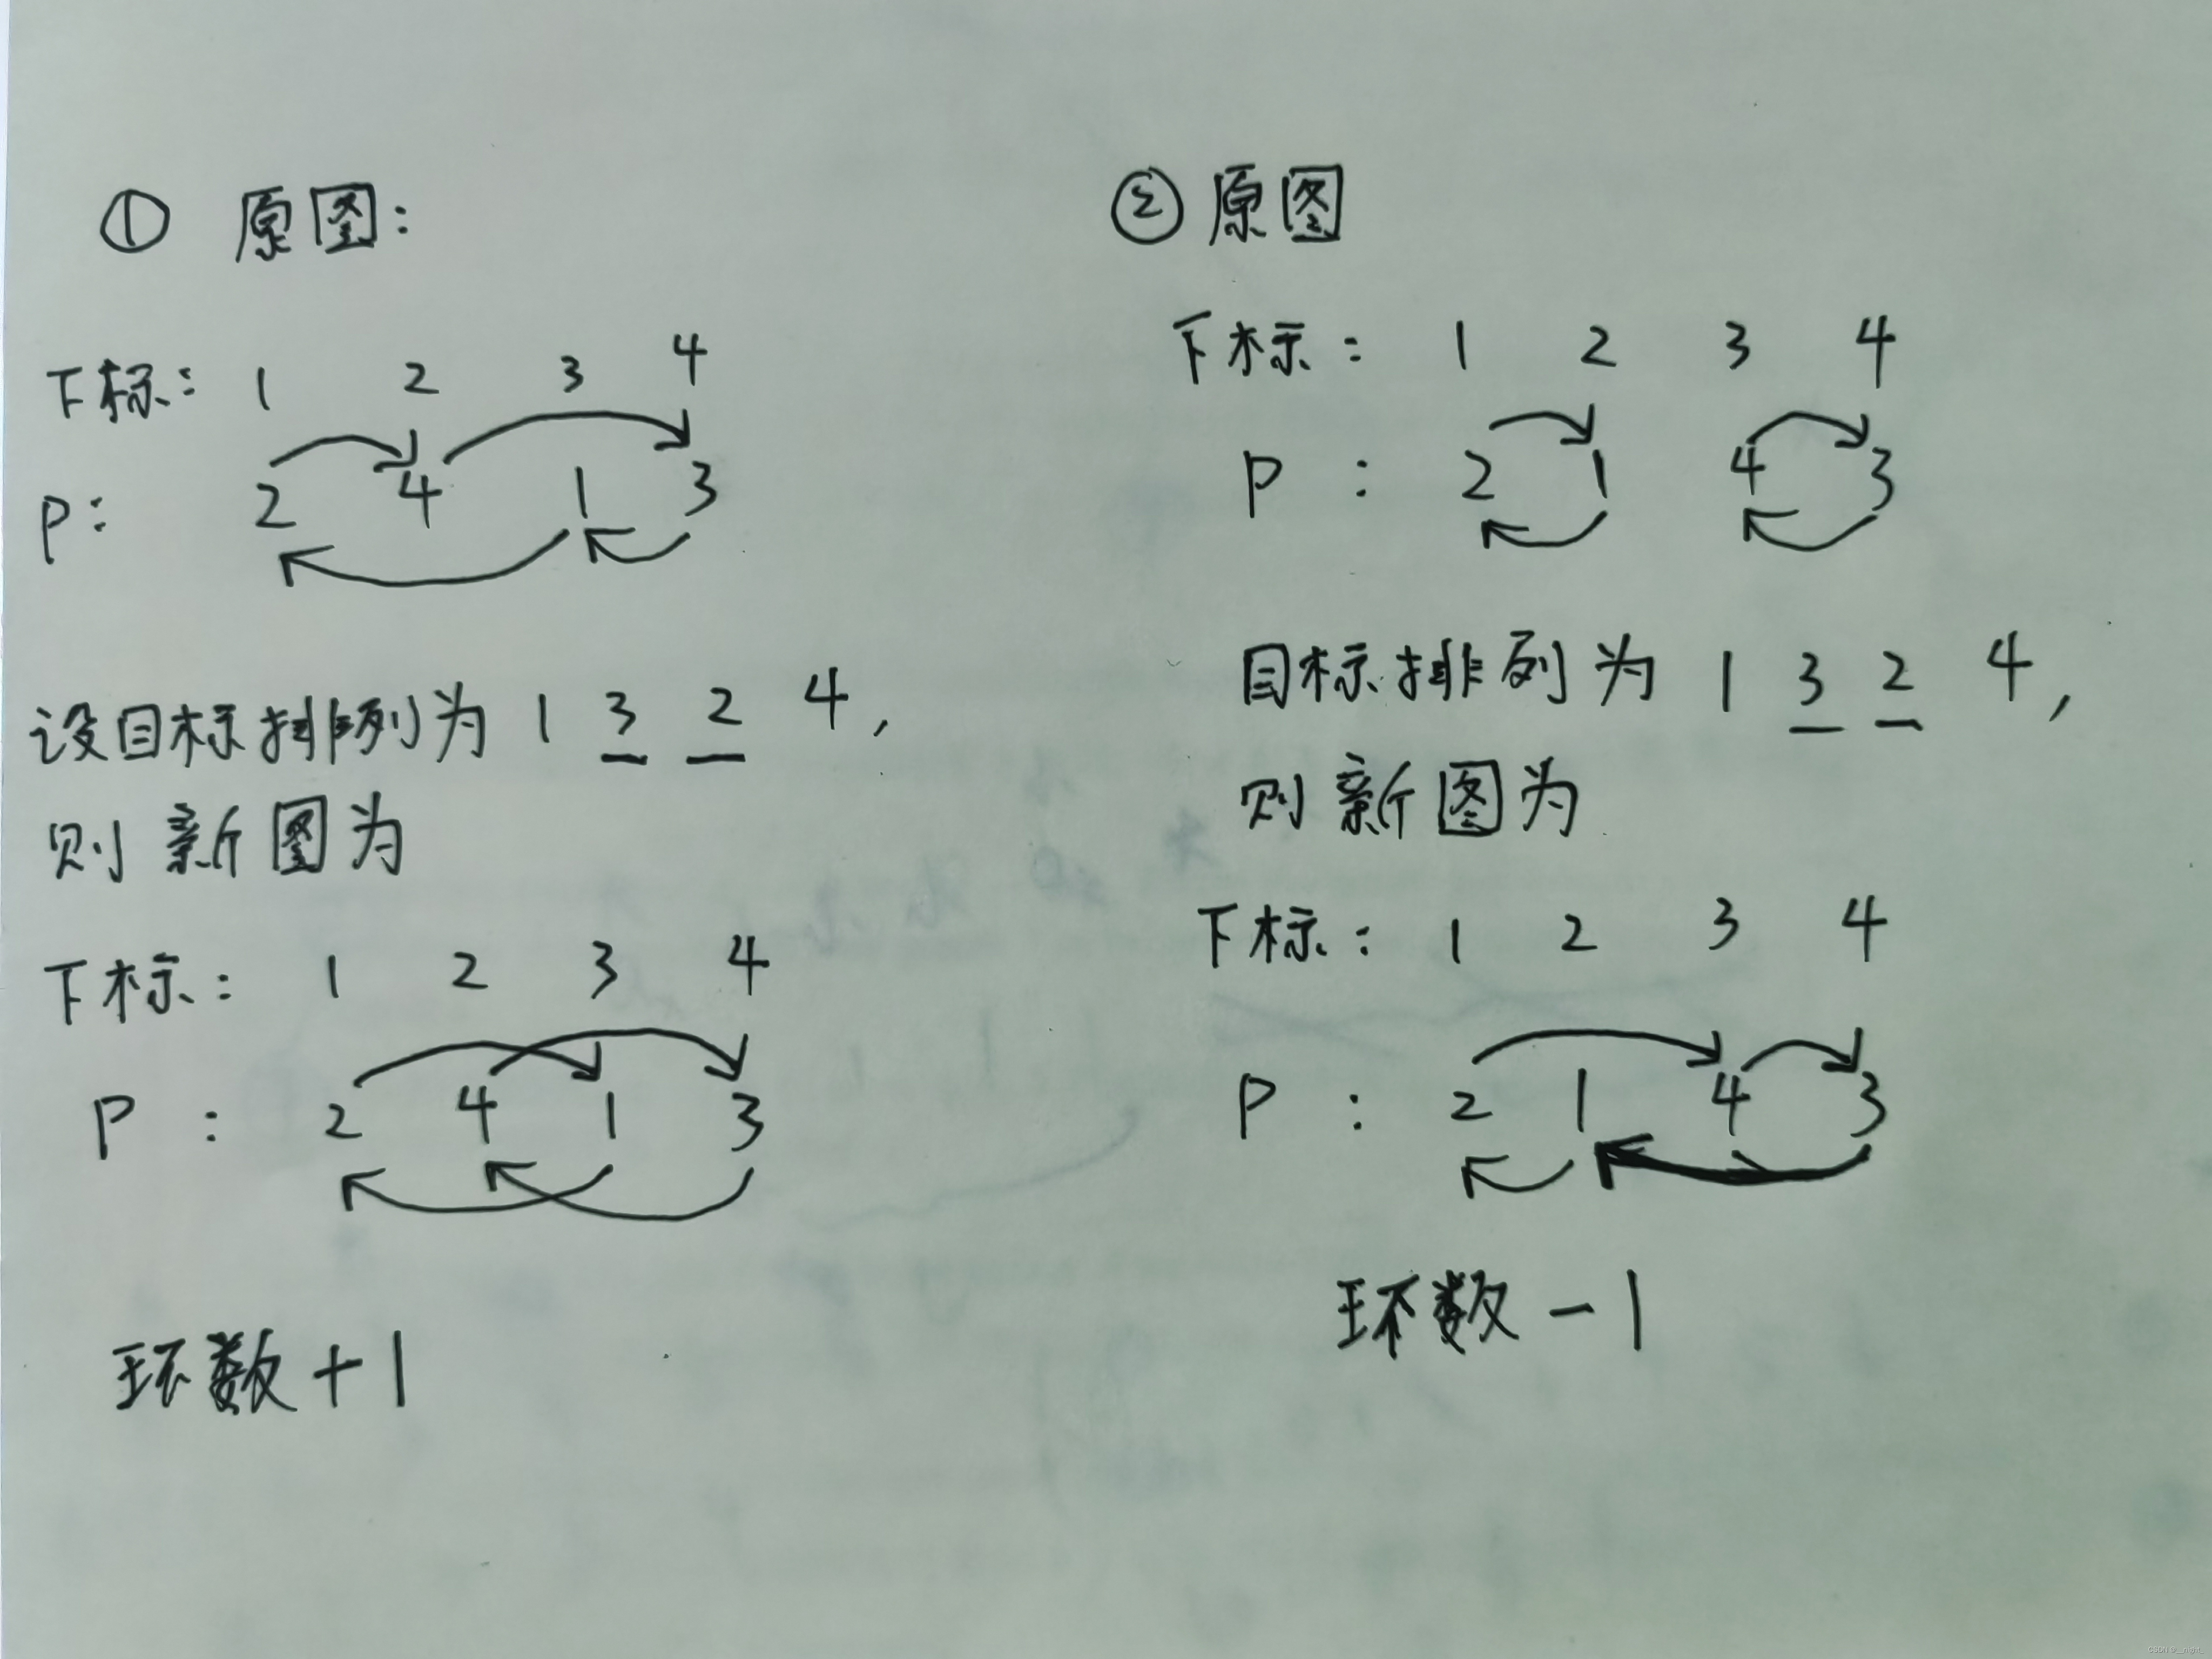 ① 原图:
下标: 1 2 3 4
P: 2 4 1 3
设目标排列为 1 3 2 4,
则新图为
下标: 1 2 3 4
P : 2 4 1 3
环数+1
② 原图
下标: 1 2 3 4
P : 2 1 4 3
目标排列为 1 3 2 4,
则新图为
下标: 1 2 3 4
P : 2 1 4 3
环数-1